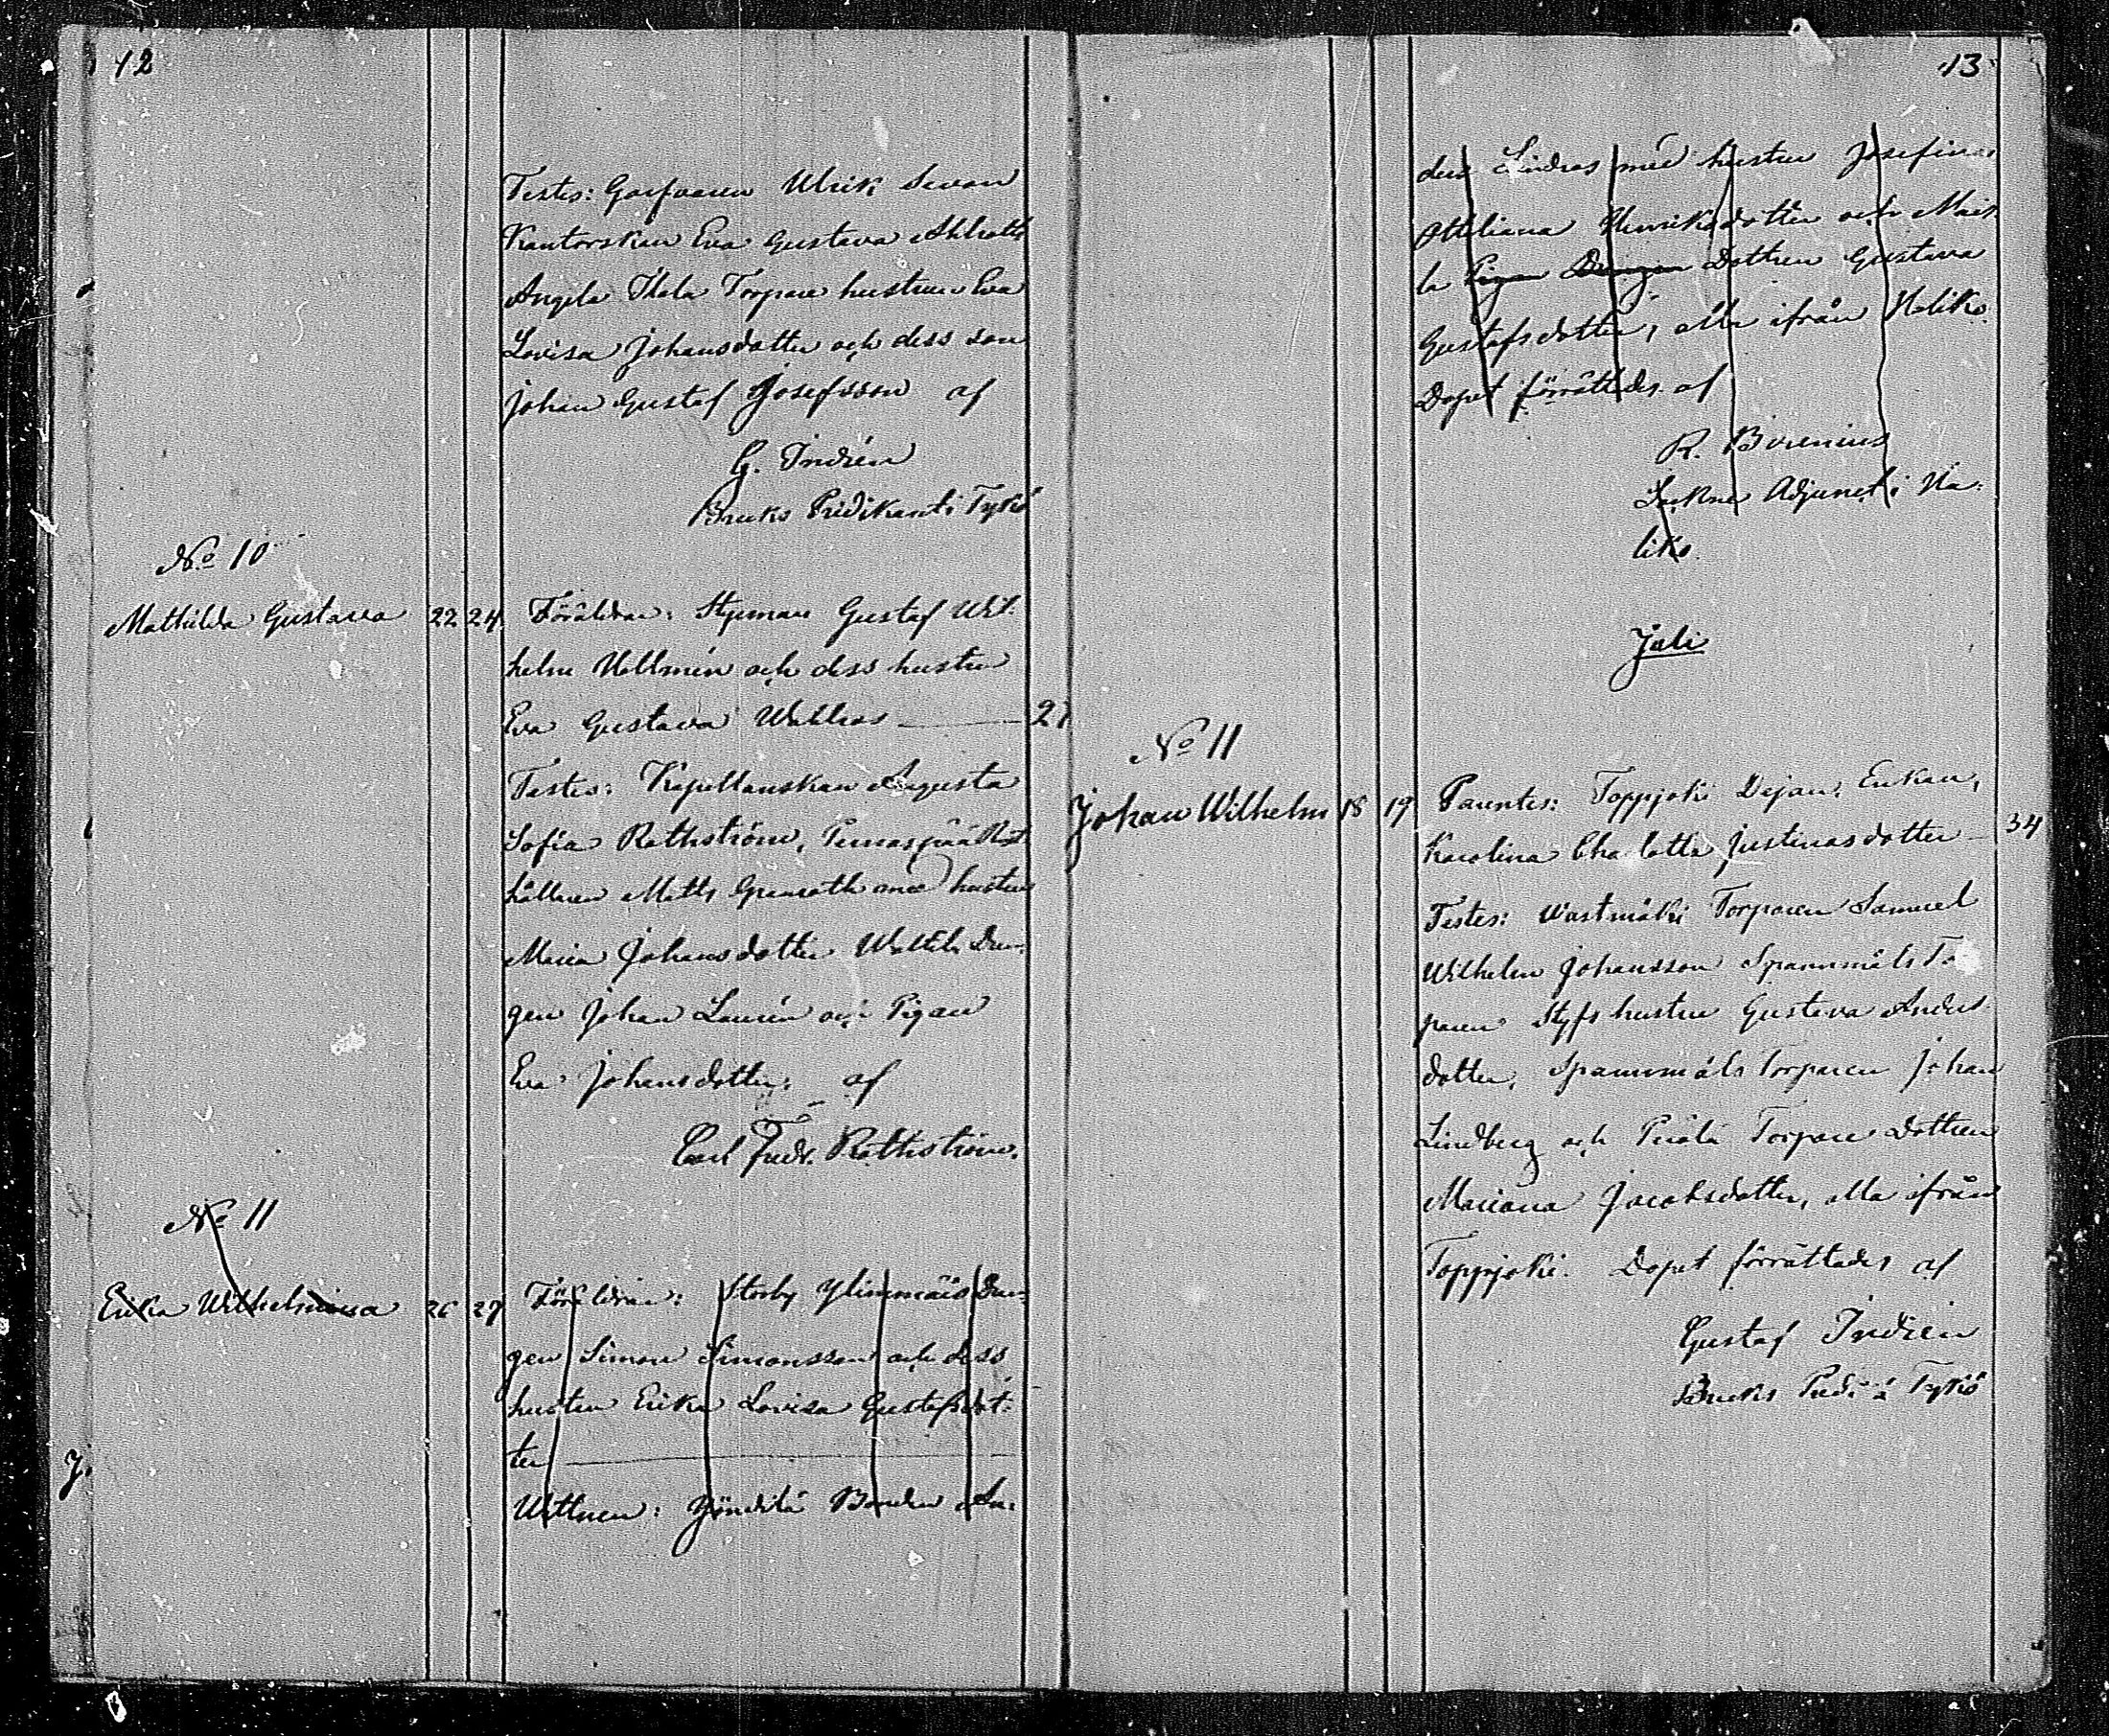 12
Testes: Garfvaren Ulrik Sevon
Kantorskan Eva Gustava Ahlroth
Angela Torpare hustrun Eva
Lovisa Johansdotter och dess son
Johan Gustaf Josefsson af
G. Indrén
Bruks Predikant i Tykö
No 10
Mathilda Gustava 22 24 Föräldrar: Styrman Gustaf Wil-
helm Hellmén och dess hustru
Eva Gustava Wahlros 27
Testes: Kapellanskan Augusta
Sofia Rothström, Rust-
hållaren Matts Grenroth med hustru
Maria Johansdotter Drän-
gen Johan Laurén och Pigan
Eva Johansdotter; af
Carl Fredr. Rothström.
No 11
Erika Wilhelmina 26 27 Föräldrar: Storby Ylimmäis Drän-
gen Simon Simonsson och dess
hustru Erika Lovisa Gustafsdot-
ter
Wittnen: Bonden An-
13
ders Lindros med hustru Josefina
Ottiliana Henriksdotter och
la Pigan Drängen Dottren Gustava
Gustafsdotter, alla ifrån Haliko.
Dopet förrättades af
R. Borenius
Sockne Adjunct i Ha-
liko.
Juli
No 11
Johan Wilhelm 18 19 Parentes: Toppjoki Dejan. Enkan,
Karolina Charlotta Justinasdotter 34
Testes: Wastmäki Torparen Samuel
Wilhelm Johansson Spannmåls Tor
paren Styfs hustru Gustava Anders
dotter, Spannmåls Torparen Johan
Lindberg och Torpare Dottren
Mariana Jacobsdotter, alla ifrån
Toppjoki. Dopet förrättades af
Gustaf Indrén
Bruks Pred. i Tykö